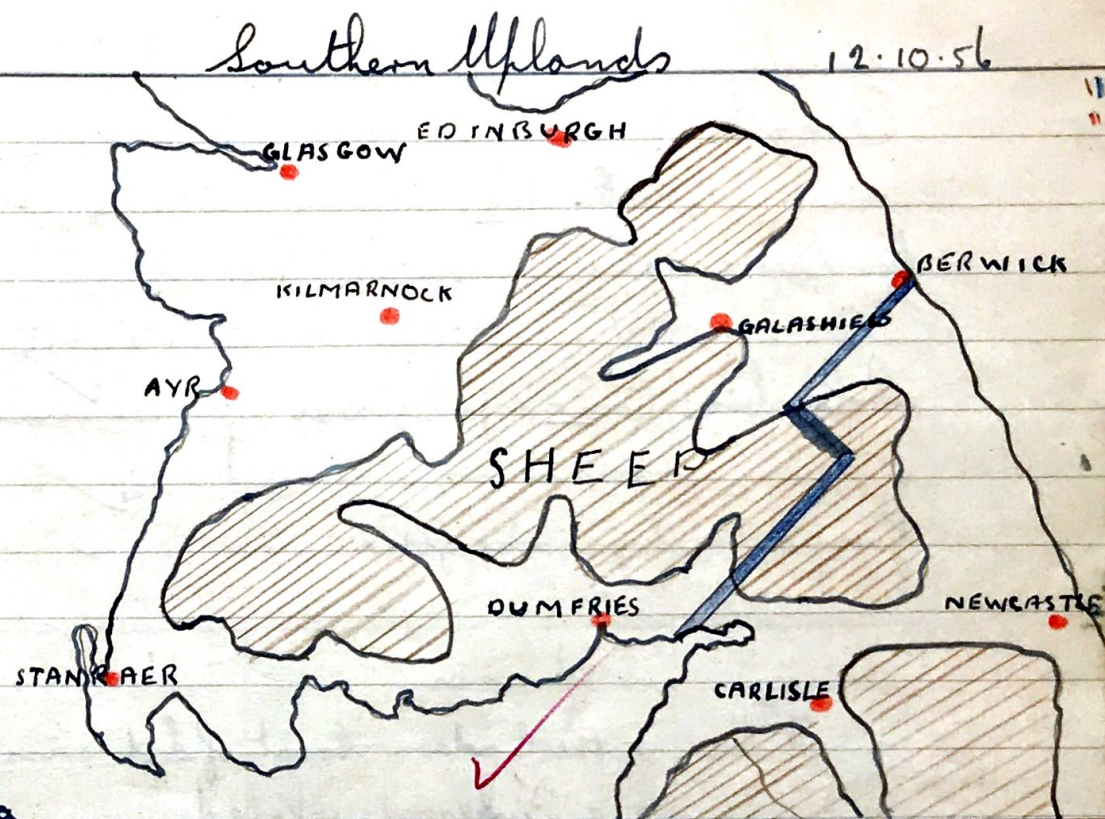 Southern Uplands 12.10.56
EDINBURGH
GLASGOW
BERWICK
KILMARNOCK
GALASHIELS
AYR
SHEEP
DUMFRIES
NEWCASTLE
STANRAER
CARLISLE